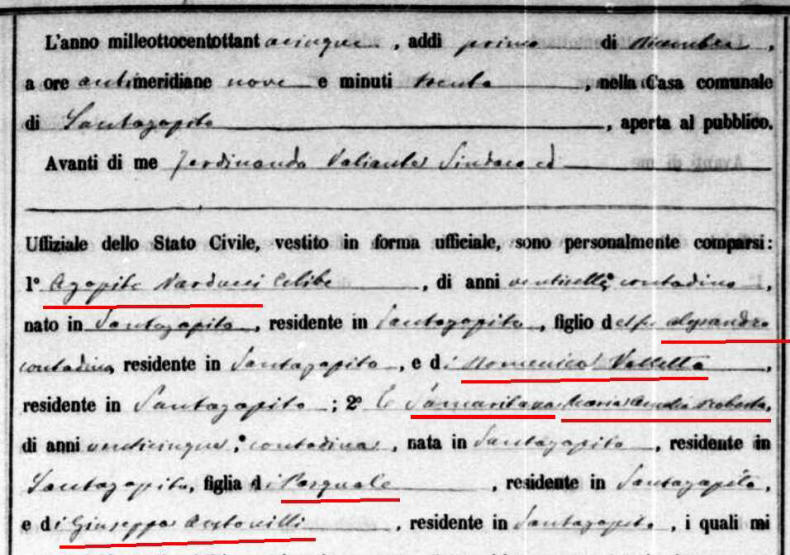 L'anno milleottocentottantacinque, addì primo di Dicembre,
a ore antimeridiane nove e minuti trenta, nella Casa comunale
di Santagapito, aperta al pubblico.
Avanti di me Ferdinando Valiante Sindaco ed
Uffiziale dello Stato Civile, vestito in forma ufficiale, sono personalmente comparsi:
1° Agapito Narducci celibe, di anni ventisette, contadino,
nato in Santagapito, residente in Santagapito, figlio del fu Alesandro
contadino, residente in Santagapito, e di Domenica Valletta,
residente in Santagapito; 2° E Samaritana Maria Roberta,
di anni venticinque, contadina, nata in Santagapito, residente in
Santagapito, figlia di Pasquale, residente in Santagapito,
e di Giuseppa Antonilli, residente in Santagapito, i quali mi